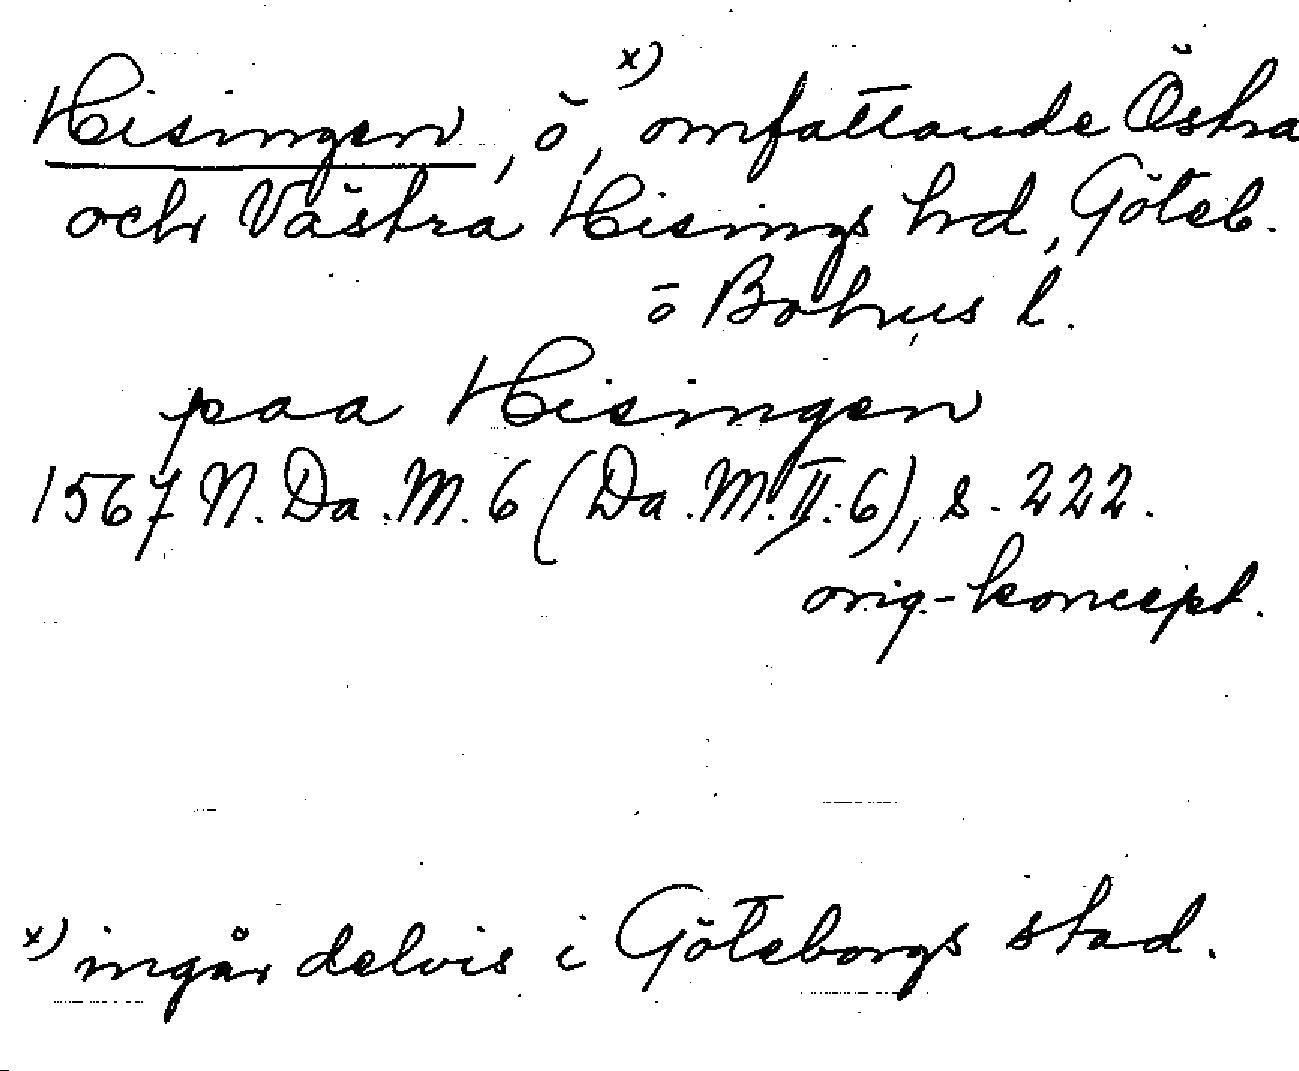 Hisingen, ö x), omfattande Östra
och Västra Hisings hd, Göteb.
o Bohus l.
paa Hisingen
1567 N. Da. M. 6 (Da. M. II. 6), s. 222.
orig.-koncept.
x) ingår delvis i Göteborgs stad.